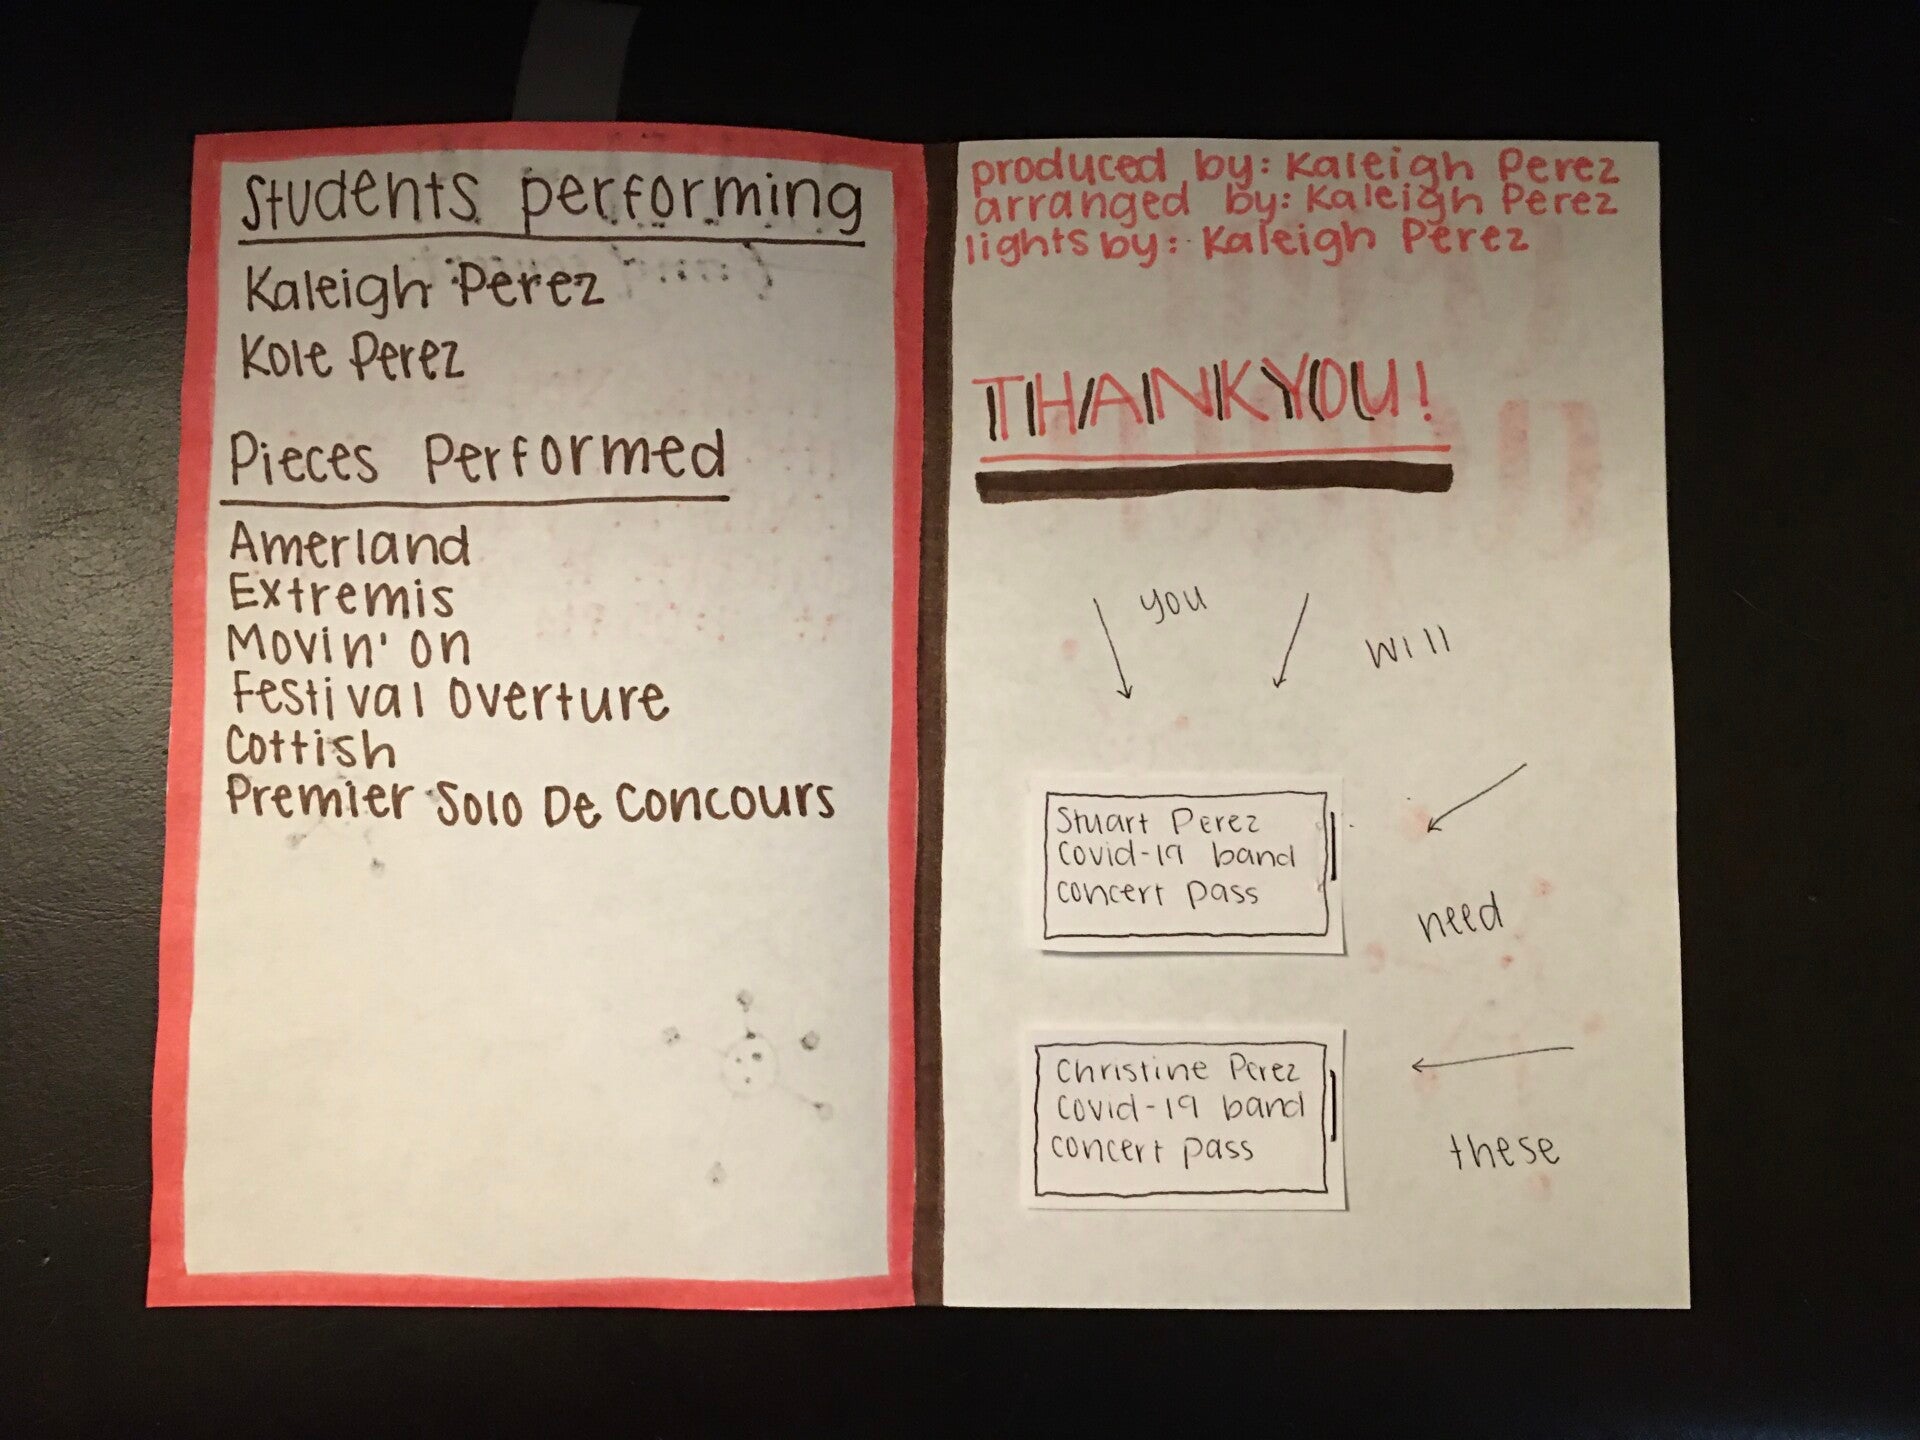 Students performing
Kaleigh Perez
Kole Perez
Pieces Performed
Amerland
Extremis
Movin' on
Festival Overture
Cottish
Premier Solo De Concours
produced by: Kaleigh Perez
arranged by: Kaleigh Perez
lights by: Kaleigh Perez
THANK YOU!
you
will
Stuart Perez
Covid-19 band
concert pass
need
Christine Perez
Covid-19 band
concert pass
these